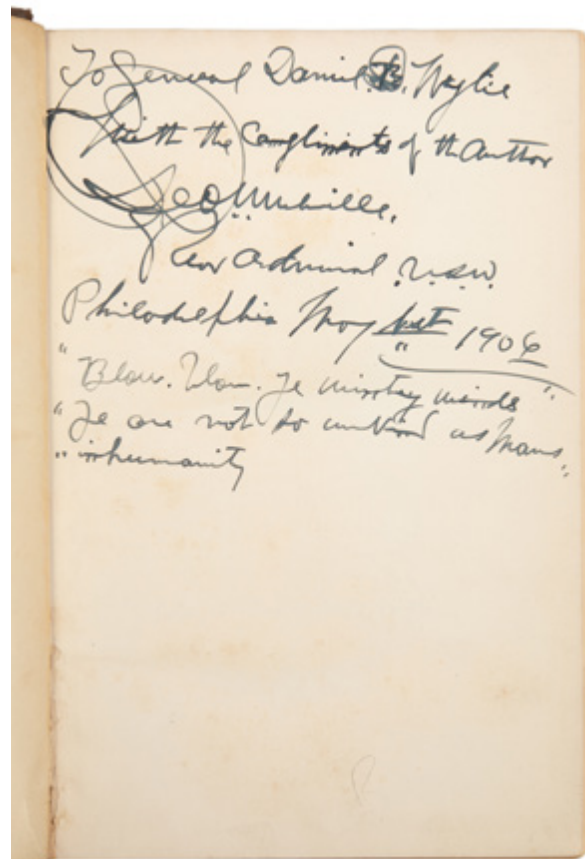 To General Daniel B. Wylie
With the Compliments of the Author
Geo. W. Melville,
Rear Admiral. U.S.N.
Philadelphia May 1st 1906
"Blow. Blow. Ye wintry winds"
"Ye are not so unkind as Mans"
"inhumanity